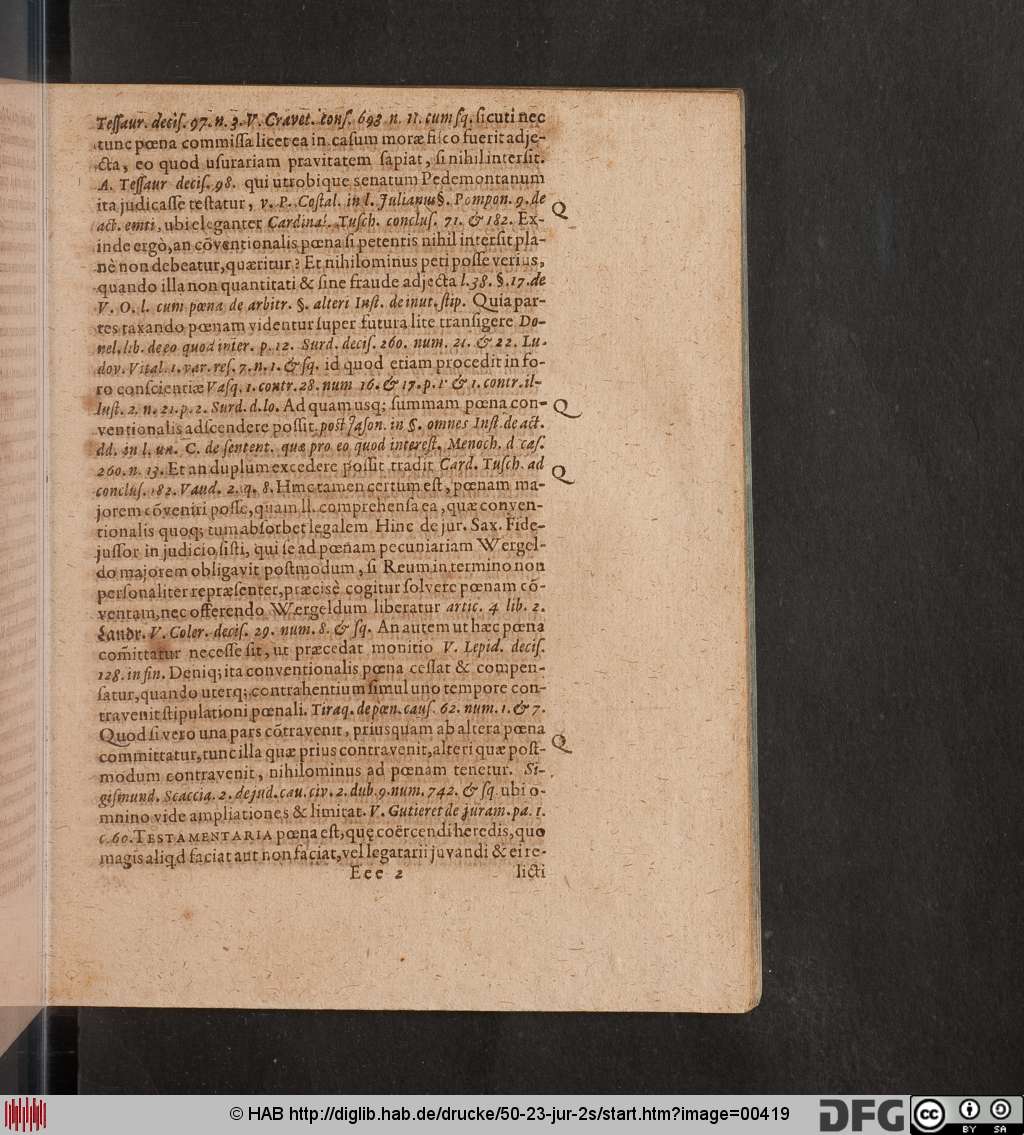 Tessaur. decis. 97. n. 3. V. Cravet. cons. 693 n. 11. cum sq. sicuti nec
tunc pœna commissa licet ea in casum moræ fisco fuerit adje-
cta, eo quod usurariam pravitatem sapiat, si nihil intersit.
A. Tessaur decis. 98. qui utrobique senatum Pedemontanum
ita judicasse testatur, v. P. Costal. in l. Julianus §. Pompon. 9. de Q
act. emti. ubi eleganter Cardinal. Tusch. conclus. 71. & 182. Ex-
inde ergò, an cōventionalis pœna si petentis nihil intersit pla-
nè non debeatur, quæritur? Et nihilominus peti posse verius,
quando illa non quantitati & sine fraude adjecta l. 38. §. 17. de
V. O. l. cum pœna de arbitr. §. alteri Inst. de inut. stip. Quia par-
tes taxando pœnam videntur super futura lite transigere Do-
nel. lib. de eo quod inter. p. 12. Surd. decis. 260. num. 21. & 22. Lu-
dov. Vital. 1. var. res. 7. n. 1. & sq. id quod etiam procedit in fo-
ro conscientiæ Vasq. 1. contr. 28. num 16. & 17. p. 1. & 1. contr. il-
lust. 2. n. 21. p. 2. Surd. d. lo. Ad quam usq; summam pœna con- Q
ventionalis adscendere possit. post Jason. in §. omnes Inst. de act.
dd. in l. un. C. de sentent. quæ pro eo quod interest. Menoch. d cas.
260. n. 13. Et an duplum excedere possit tradit Card. Tusch. ad Q
conclus. 182. Vaud. 2. q. 8. Hinc tamen certum est, pœnam ma-
jorem cōveniri posse, quam ll. comprehensa ea, quæ conven-
tionalis quoq; tum absorbet legalem Hinc de jur. Sax. Fide-
jussor in judicio sisti, qui se ad pœnam pecuniariam Wergel-
do majorem obligavit postmodum, si Reum in termino non
personaliter repræsentet, præcisè cogitur solvere pœnam cō-
ventam, nec offerendo Wergeldum liberatur artic. 4 lib. 2.
Landr. V. Coler. decis. 29. num. 8. & sq. An autem ut hæc pœna
com̄ittatur necesse sit, ut præcedat monitio V. Lepid. decis.
128. in fin. Deniq; ita conventionalis pœna cessat & compen-
satur, quando uterq; contrahentium simul uno tempore con-
travenit stipulationi pœnali. Tiraq. de pœn. caus. 62. num. 1. & 7.
Quod si vero una pars cōtravenit, priusquam ab altera pœna Q
committatur, tunc illa quæ prius contravenit, alteri quæ post-
modum contravenit, nihilominus ad pœnam tenetur. Si-
gismund. Scaccia. 2. de jud. cau. civ. 2. dub. 9. num. 742. & sq. ubi o-
mnino vide ampliationes & limitat. V. Gutieret de juram. pa. 1.
c. 60. TESTAMENTARIA pœna est, quę coërcendi heredis, quo
magis aliqd faciat aut non faciat, vel legatarii juvandi & ei re-
Eee 2 licti
© HAB http://diglib.hab.de/drucke/50-23-jur-2s/start.htm?image=00419
DFG cc BY SA